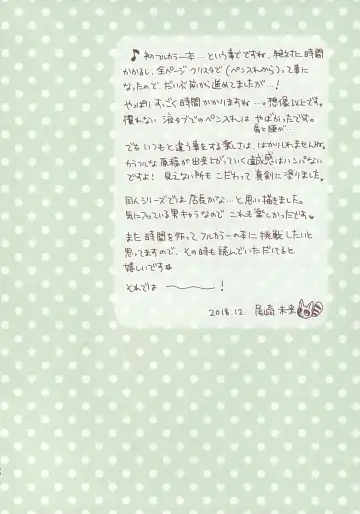 ♪ 初のフルカラー本…という事でですね、絶対に時間
かかるし、全ページクリスタで(ペン入れから)って事に
なったので、だいぶ前から進めてましたが…!
やっぱりすっごく時間かかりますね…。想像以上です。
慣れない液タブでのペン入れは、やばかったです。
肩と腰が…
でもいつもと違う事をする楽しさは、はかりしれませんね。
カラフルな原稿が出来上がっていく達成感はハンパない
ですよ! 見えない所もこだわって真剣に塗りました。
同人シリーズでは店長かな…と思い描きました。
気に入っている男キャラなので これも楽しかったです♥
また時間を作ってフルカラーの本に挑戦したいと
思ってますので、その時も読んでいただけると
嬉しいです☆
それでは 〜〜〜!
2018.12. 尾崎未来